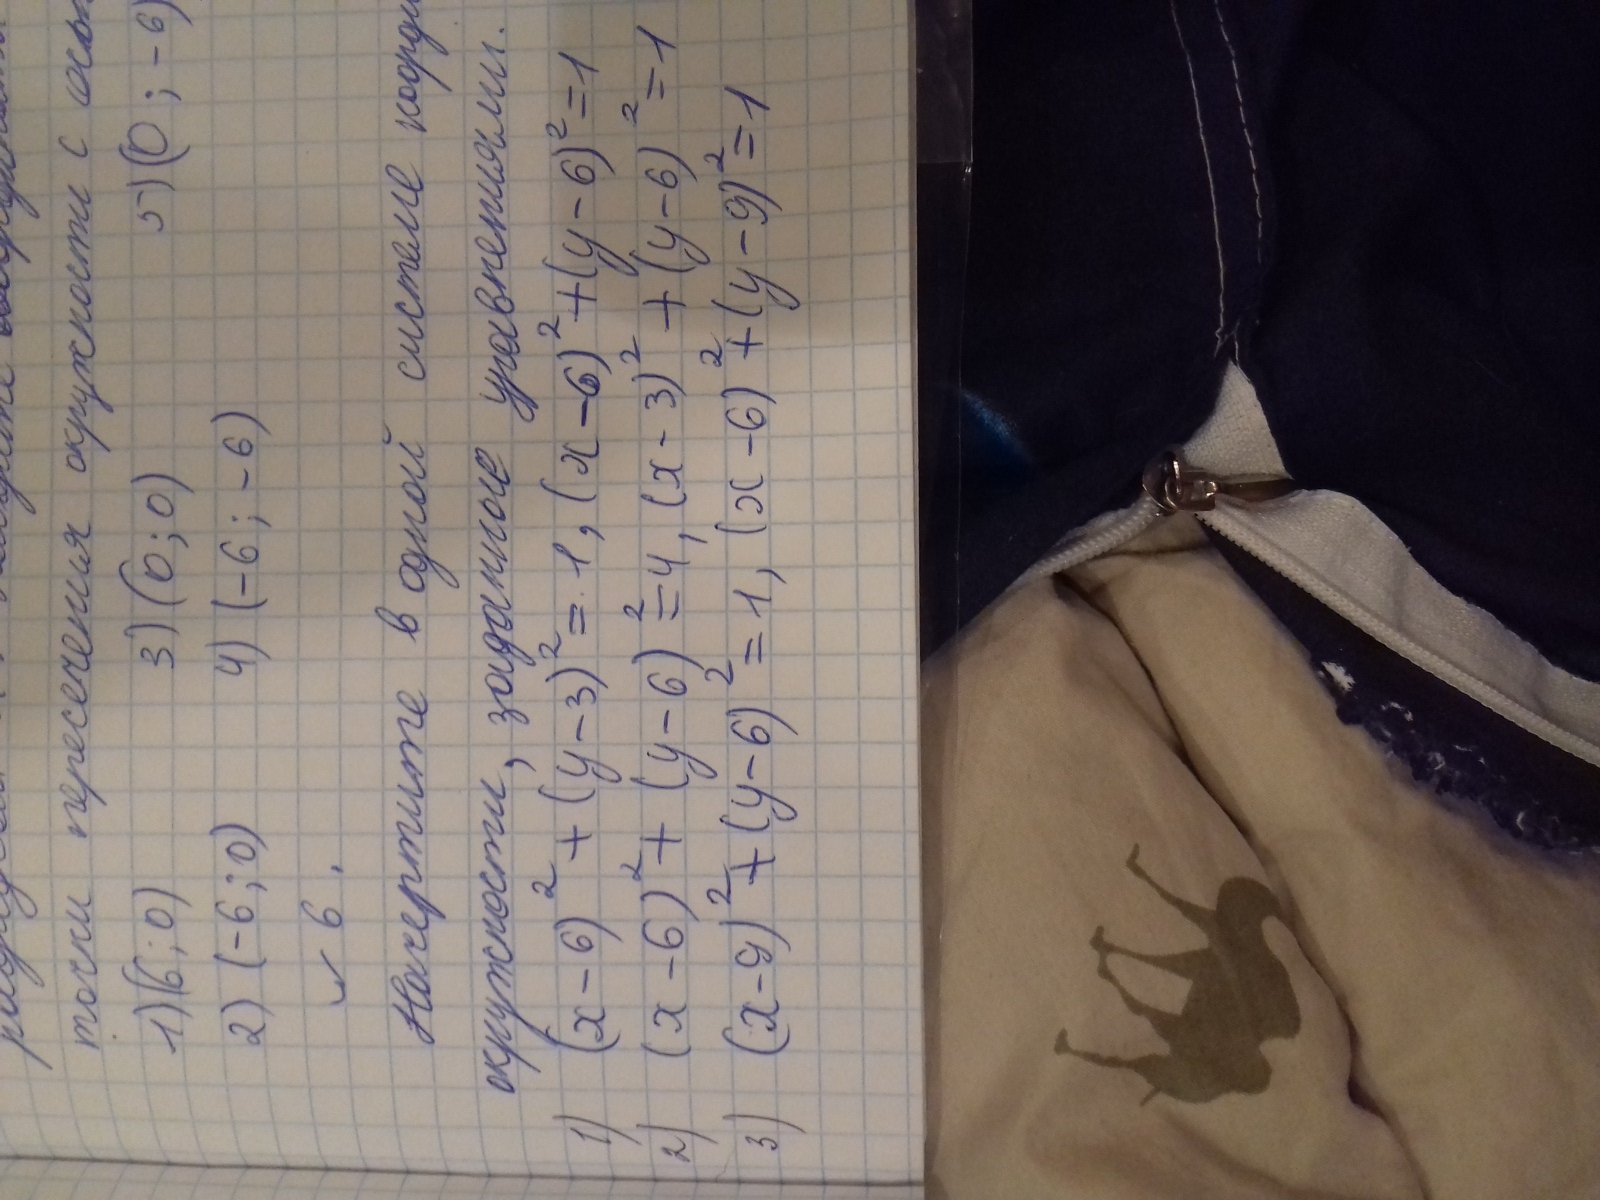 точки пересечения окружности с
1) (6; 0) 3) (0; 0) 5) (0; -6)
2) (-6; 0) 4) (-6; -6)
✓ 6.
Начертите в одной системе
окружности, заданные уравнениями.
1) (x-6)² + (y-3)² = 1, (x-6)² + (y-6)² = 1
2) (x-6)² + (y-6)² = 4, (x-3)² + (y-6)² = 1
3) (x-9)² + (y-6)² = 1, (x-6)² + (y-9)² = 1